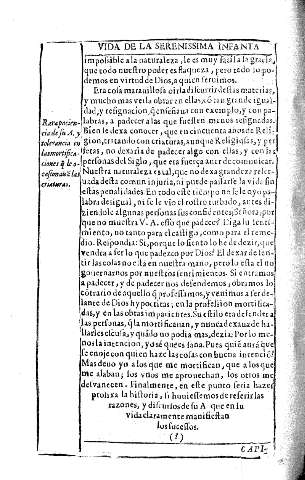 VIDA DE LA SERENISSIMA INFANTA
impossible a la naturaleza, le es muy facil a la gracia,
que todo nuestro poder es flaqueza, pero todo lo po-
demos en virtud de Dios, a quien servimos.
Era cosa maravillosa oirla discurrir destas materias,
y mucho mas verla obrar en ellas, con
igual-
dad, y resignacion, q̃ enseñava con exemplo, y con pa-
labras, a padecer a las que fuessen menos resignadas.
Bien se dexa conocer, que en cincuenta años de Reli-
gion, tratando con criaturas, aunque Religiosas, y per
fetas, no dexaria de padecer algo con ellas, y con las
personas del Siglo, que era fuerça aver de comunicar.
Nuestra naturaleza es tal, que no dexa grandeza reser-
vada desta comun injuria, ni puede passarse la vida sin
estas penalidades. En todo este tiempo no se le oyo pa-
labra desigual, ni se le vio el rostro turbado, antes di-
ziendole algunas personas sus confidentes; Señora, por
que no muestra V. A. esso que padece? Diga su senti-
miento, no tanto por el castigo, como para el reme-
dio. Respondia: Si, porque lo siento lo he de dezir, que
vendra a ser lo que padezco por Dios? El dexar de sen-
tir las cosas no esta en nuestra mano, pero lo esta el no
governarnos por nuestros sentimientos. Si entramos
a padecer, y de padecer nos defendemos, obramos lo
cõtrario de aquello q̃ professamos, y venimos a ser de-
lante de Dios hypocritas, en la profession mortifica-
das, y en las obras impacientes. Su estilo era defender a
las personas, q̃ la mortificavan, y nunca dexava de ha-
llarles escusa, y quãdo no podia mas, dezia: Por lo me-
nos la intencion, yo sè que es sana. Pues quiẽ avrà que
se enoje con quien haze las cosas con buena intenciõ?
Mas devo yo a los que me mortifican, que a los que
me alaban; los unos me aprovechan, los otros me
desvanecen. Finalmente, en este punto seria hazer
prolixa la historia, si huviessemos de referir las
razones, y discursos de su A. que en su
vida claramente manifiestan
los sucessos.
(§)
CAPI-
Rara pacien-
cia de su A. y
tolerancia en
las mortifica-
ciones q̃ le o-
casionavã las
criaturas.